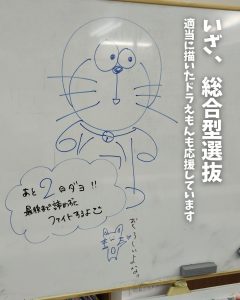 いざ、総合型選抜
適当に描いたドラえもんも応援しています
あと2日ダヨ!!
最後まで諦めずに
ファイトするよ